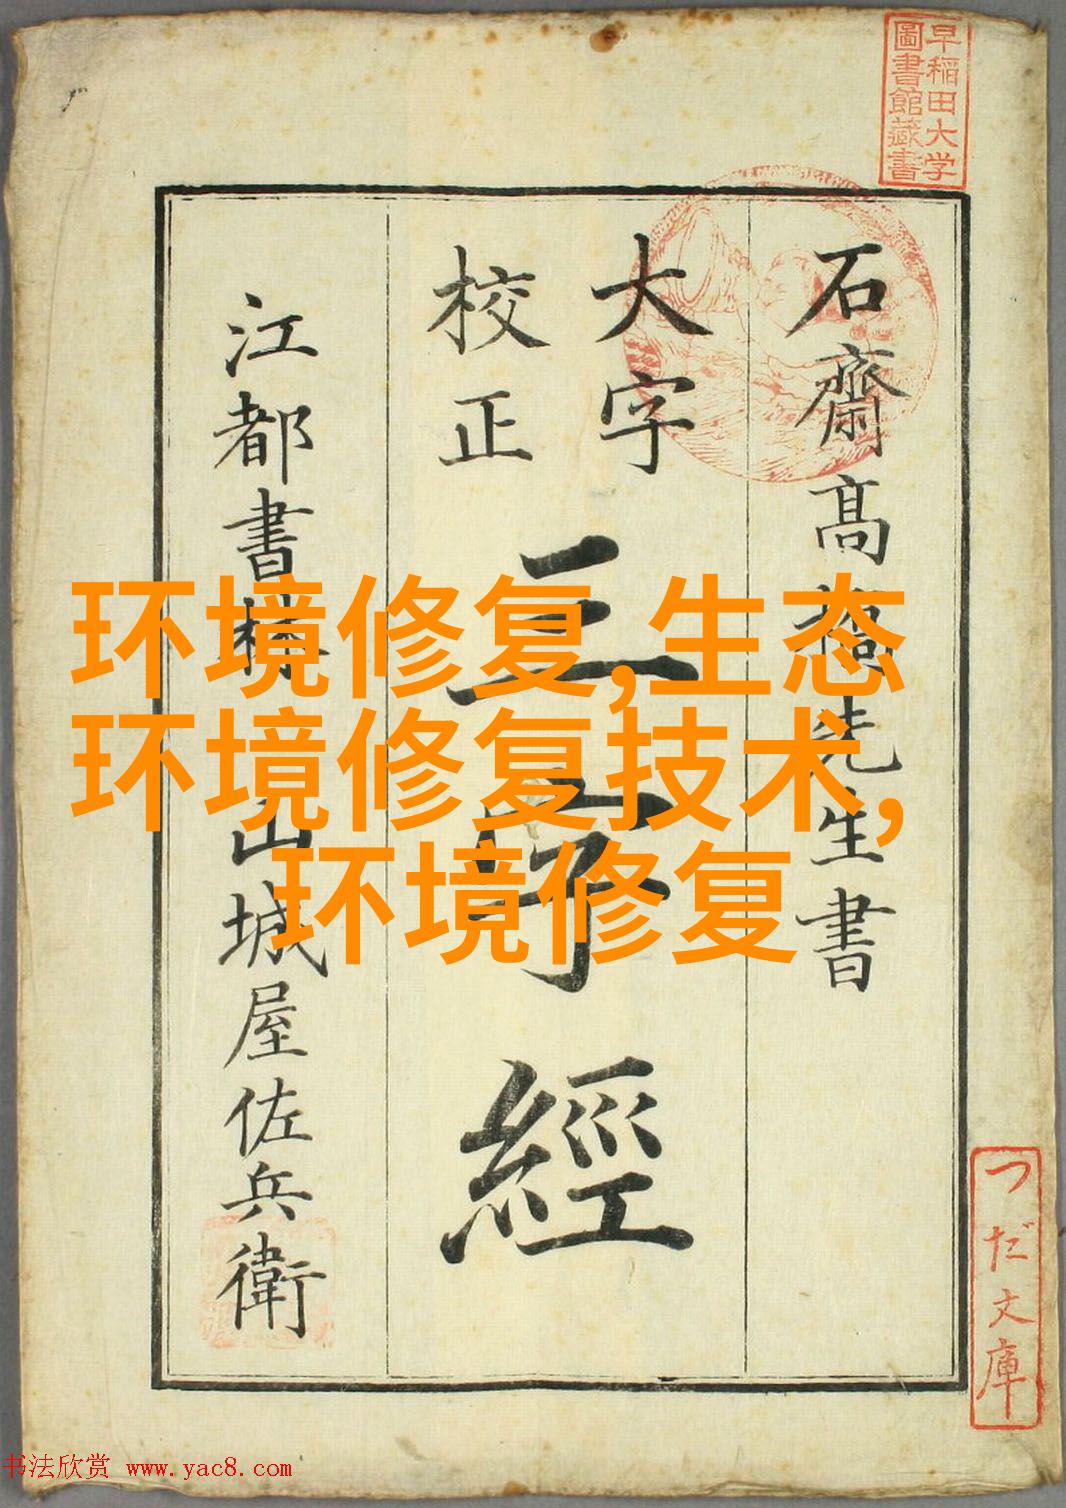 早稲田大学
圖書館藏書
石齋髙橋先生書
大字
校正
三字經
江都書林 山城屋佐兵衛
つだ文庫
环境修复,生态
环境修复技术,
环境修复
书法欣赏 www.yac8.com